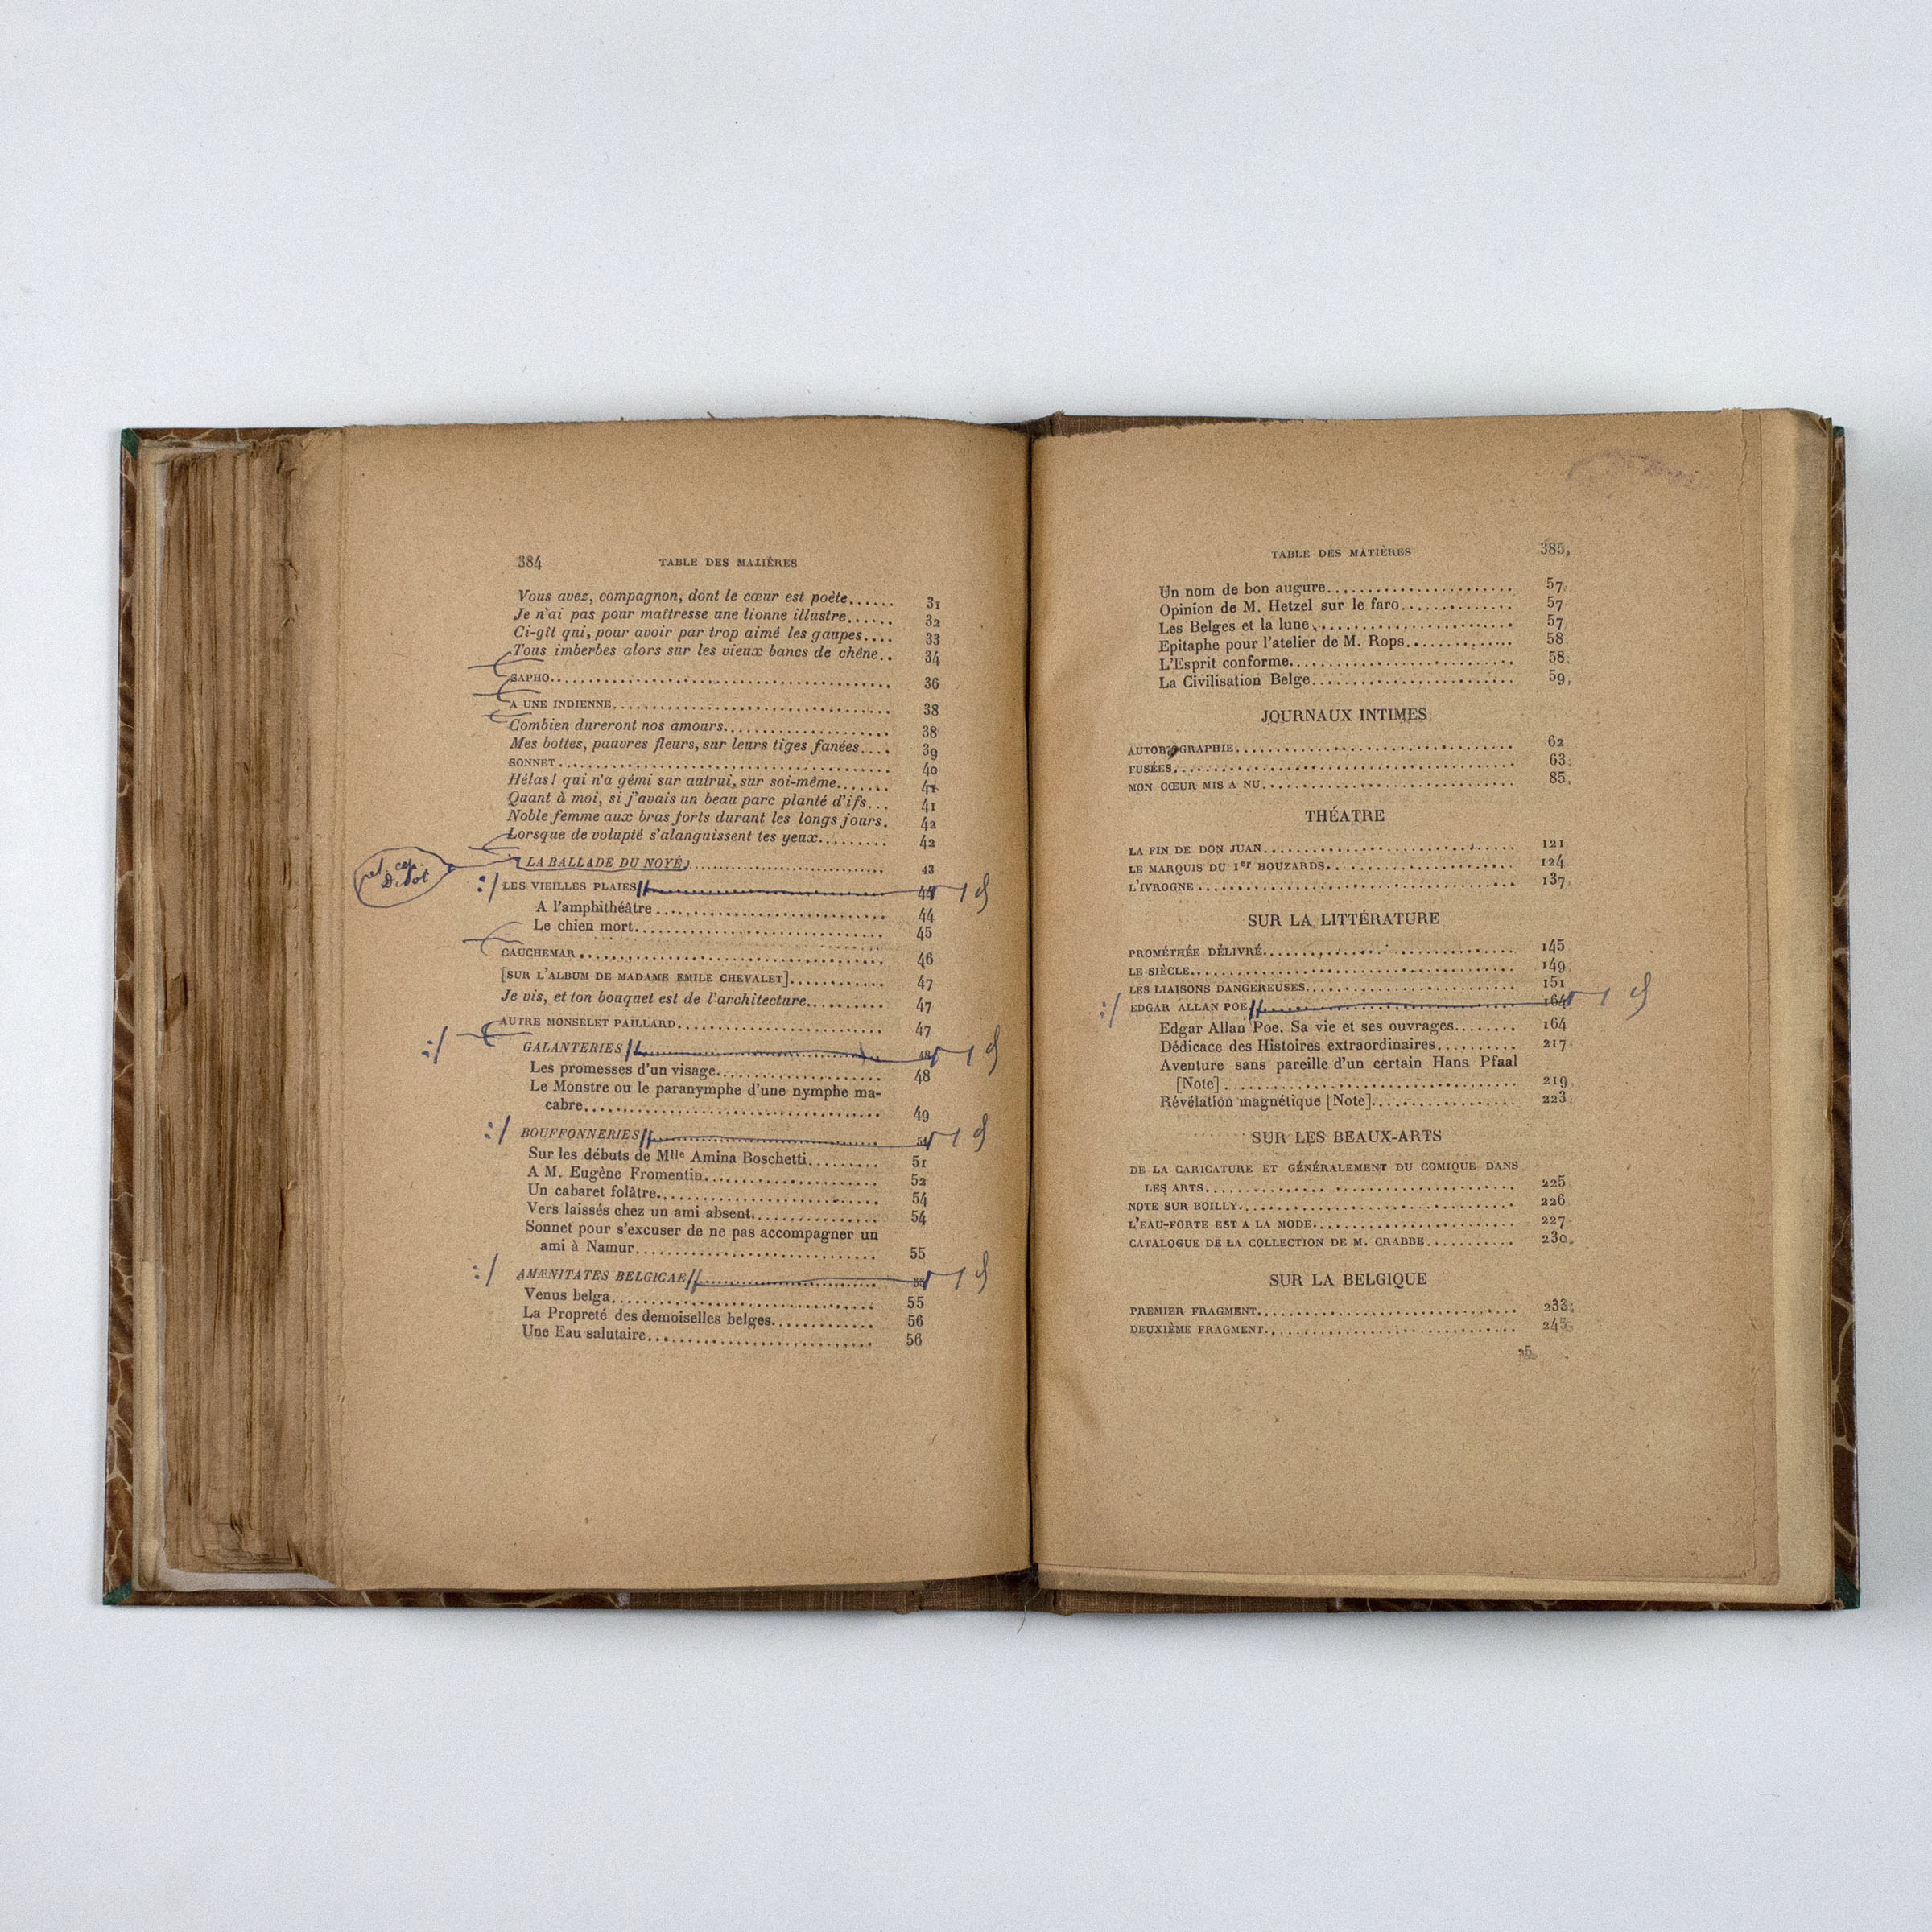 384 TABLE DES MATIÈRES
Vous avez, compagnon, dont le cœur est poète...... 31
Je n'ai pas pour maîtresse une lionne illustre...... 32
Ci-gît qui, pour avoir par trop aimé les gaupes.... 33
Tous imberbes alors sur les vieux bancs de chêne.. 34
SAPHO........................................ 36
A UNE INDIENNE................................ 38
Combien dureront nos amours.................... 38
Mes bottes, pauvres fleurs, sur leurs tiges fanées.... 39
SONNET........................................ 40
Hélas! qui n'a gémi sur autrui, sur soi-même....... 41
Quant à moi, si j'avais un beau parc planté d'ifs... 41
Noble femme aux bras forts durant les longs jours. 42
Lorsque de volupté s'alanguissent tes yeux......... 42
LA BALLADE DU NOYÉ............................ 43
Didot
:/ LES VIEILLES PLAIES//............................ 44
A l'amphithéâtre............................ 44
Le chien mort............................... 45
CAUCHEMAR.................................... 46
[SUR L'ALBUM DE MADAME EMILE CHEVALET]............ 47
Je vis, et ton bouquet est de l'architecture.......... 47
AUTRE MONSELET PAILLARD........................ 47
:/ GALANTERIES//............................ 48
Les promesses d'un visage.................... 48
Le Monstre ou le paranymphe d'une nymphe ma-
cabre.................................... 49
:/ BOUFFONNERIES//............................ 51
Sur les débuts de Mlle Amina Boschetti......... 51
A M. Eugène Fromentin...................... 52
Un cabaret folâtre........................... 54
Vers laissés chez un ami absent................ 54
Sonnet pour s'excuser de ne pas accompagner un
ami à Namur.............................. 55
:/ AMÆNITATES BELGICAE//........................ 55
Venus belga................................ 55
La Propreté des demoiselles belges............. 56
Une Eau salutaire........................... 56
TABLE DES MATIÈRES 385
Un nom de bon augure........................ 57
Opinion de M. Hetzel sur le faro............. 57
Les Belges et la lune........................ 57
Epitaphe pour l'atelier de M. Rops............. 58
L'Esprit conforme........................... 58
La Civilisation Belge........................ 59
JOURNAUX INTIMES
AUTOBIOGRAPHIE................................ 62
FUSÉES........................................ 63
MON CŒUR MIS A NU............................ 85
THÉATRE
LA FIN DE DON JUAN............................ 121
LE MARQUIS DU 1er HOUZARDS.................... 124
L'IVROGNE.................................... 137
SUR LA LITTÉRATURE
PROMÉTHÉE DÉLIVRÉ............................ 145
LE SIÈCLE.................................... 149
LES LIAISONS DANGEREUSES........................ 151
:/ EDGAR ALLAN POE//............................ 164
Edgar Allan Poe. Sa vie et ses ouvrages........ 164
Dédicace des Histoires extraordinaires.......... 217
Aventure sans pareille d'un certain Hans Pfaal
[Note].................................... 219
Révélation magnétique [Note].................. 223
SUR LES BEAUX-ARTS
DE LA CARICATURE ET GÉNÉRALEMENT DU COMIQUE DANS
LES ARTS.................................... 225
NOTE SUR BOILLY................................ 226
L'EAU-FORTE EST A LA MODE........................ 227
CATALOGUE DE LA COLLECTION DE M. CRABBE........... 230
SUR LA BELGIQUE
PREMIER FRAGMENT................................ 233
DEUXIÈME FRAGMENT............................ 245
25